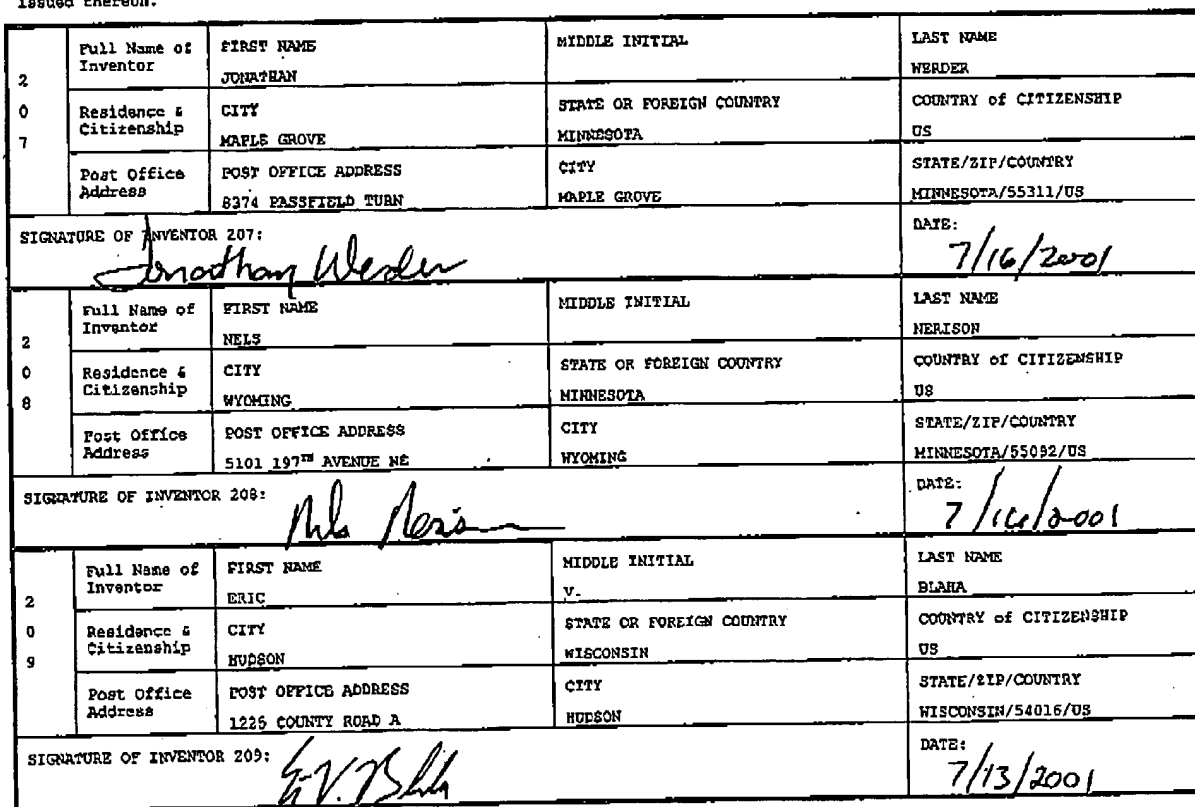 issued thereon.
2 0 7
Full Name of Inventor
FIRST NAME
JONATHAN
MIDDLE INITIAL
LAST NAME
WERDER
Residence & Citizenship
CITY
MAPLE GROVE
STATE OR FOREIGN COUNTRY
MINNESOTA
COUNTRY of CITIZENSHIP
US
Post Office Address
POST OFFICE ADDRESS
8374 PASSFIELD TURN
CITY
MAPLE GROVE
STATE/ZIP/COUNTRY
MINNESOTA/55311/US
SIGNATURE OF INVENTOR 207:
Jonathan Werder
DATE:
7/16/2001
2 0 8
Full Name of Inventor
FIRST NAME
NELS
MIDDLE INITIAL
LAST NAME
NERISON
Residence & Citizenship
CITY
WYOMING
STATE OR FOREIGN COUNTRY
MINNESOTA
COUNTRY of CITIZENSHIP
US
Post Office Address
POST OFFICE ADDRESS
5101 197TH AVENUE NE
CITY
WYOMING
STATE/ZIP/COUNTRY
MINNESOTA/55092/US
SIGNATURE OF INVENTOR 208:
Nels Neris
DATE:
7/16/2001
2 0 9
Full Name of Inventor
FIRST NAME
ERIC
MIDDLE INITIAL
V.
LAST NAME
BLAHA
Residence & Citizenship
CITY
HUDSON
STATE OR FOREIGN COUNTRY
WISCONSIN
COUNTRY of CITIZENSHIP
US
Post Office Address
POST OFFICE ADDRESS
1225 COUNTY ROAD A
CITY
HUDSON
STATE/ZIP/COUNTRY
WISCONSIN/54016/US
SIGNATURE OF INVENTOR 209:
DATE:
7/13/2001